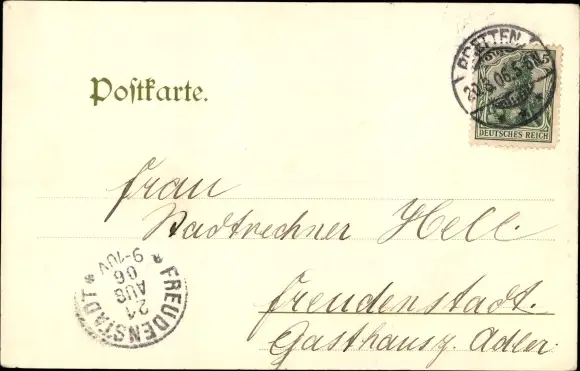 BRETTEN
20.8.06.5-6N.
DEUTSCHES REICH
Postkarte.
Frau
Stadtrechner Hell.
Freudenstadt.
Gasthaus z. Adler.
* FREUDENSTADT *
21
AUG
06
9-10V